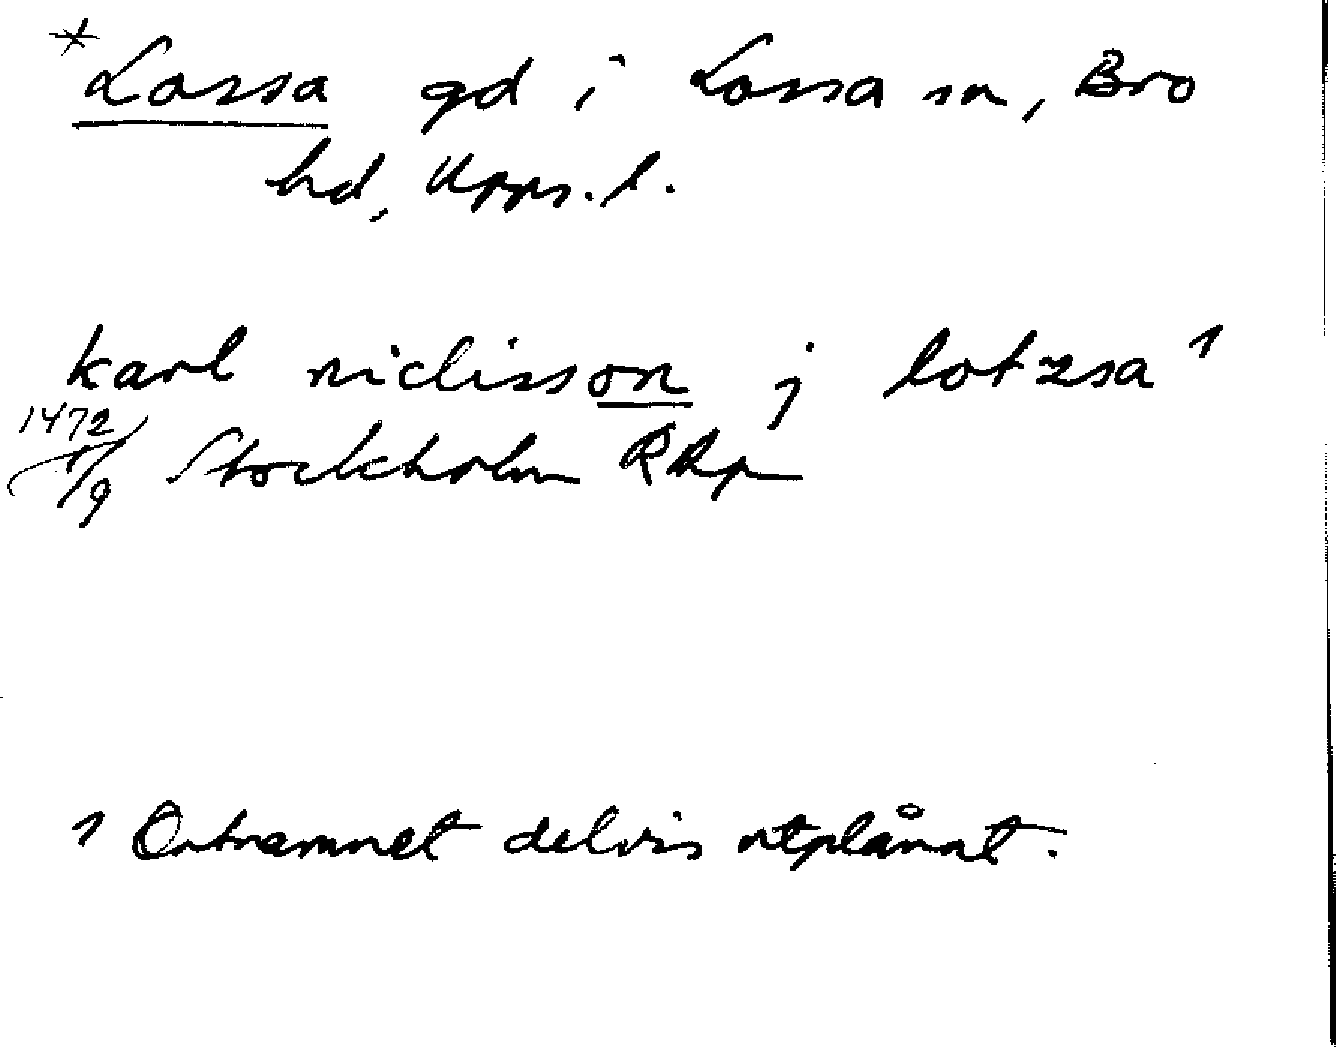 * Lossa gd i Lossa sn, Bro
hd, Upps. l.
karl niclisson j lotzsa 1
1472
1/9 Stockholm RAp
1 Ortnamnet delvis utplånat.